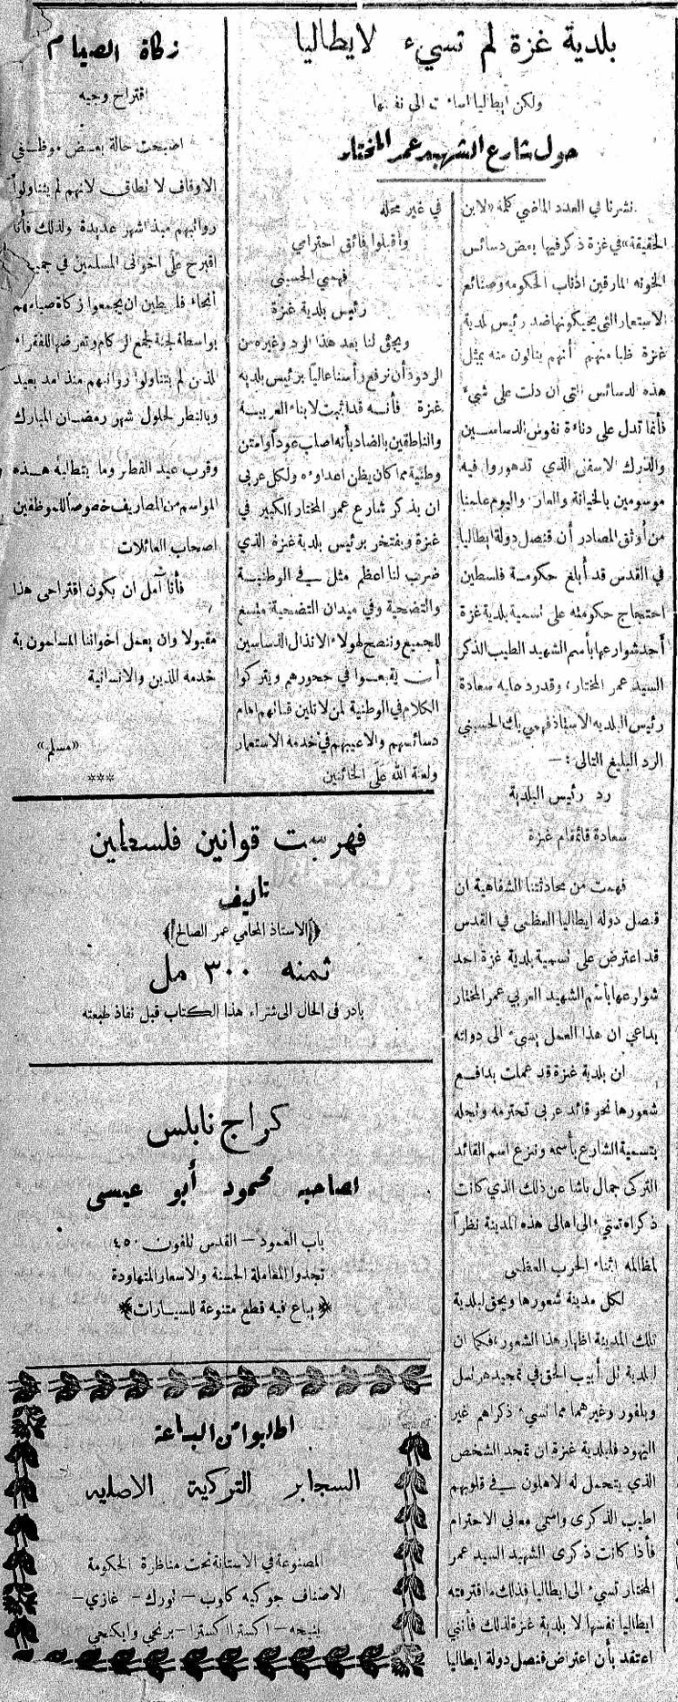 بلدية غزة لم تسيء لايطاليا
ولكن ايطاليا اساءت الى نفسها
حول شارع الشهيد عمر المختار
نشرنا في العدد الماضي كلمة «لابن
الحقيقة» في غزة ذكر فيها بعض دسائس
الخونه المارقين اذناب الحكومه وصنائع
الاستعمار التي يحيكونها ضد رئيس بلدية
غزة ظنا منهم أنهم ينالون منه بمثل
هذه الدسائس التي ان دلت على شيء
فأنما تدل على دناءة نفوس الدساسين
والدرك الاسفل الذي تدهوروا فيه
موسومين بالخيانة والعار، واليوم علمنا
من أوثق المصادر أن قنصل دولة ايطاليا
في القدس قد أبلغ حكومة فلسطين
احتجاج حكومته على تسمية بلدية غزة
أحد شوارعها بأسم الشهيد الطيب الذكر
السيد عمر المختار، وقد رد عليه سعادة
رئيس البلديه الاستاذ فهمي بك الحسيني
الرد البليغ التالي: —
رد رئيس البلدية
سعادة قائمقام غزة
فهمت من محادثتنا الشفاهية ان
قنصل دوله ايطاليا العظمى في القدس
قد اعترض على تسمية بلدية غزة احد
شوارعها بأسم الشهيد العربي عمر المختار
بداعي ان هذا العمل يسيء الى دولته
ان بلدية غزة قد عملت بدافع
شعورها نحو قائد عربي تحترمه وتجله
بتسمية الشارع بأسمه ونزع اسم القائد
التركي جمال باشا عن ذلك الذي كانت
ذكراه تسيء الى اهالى هذه المدينة نظراً
لمظالمه اثناء الحرب العظمى
لكل مدينة شعورها ويحق لبلدية
تلك المدينة اظهار هذا الشعور، فكما ان
لبلدية تل أبيب الحق في تمجيد هرتسل
وبلفور وغيرهما مما تسيء ذكراهم غير
اليهود فلبلدية غزة ان تمجد الشخص
الذي يتحمل له الاهلون في قلوبهم
اطيب الذكرى واسمى معاني الاحترام
فأذا كانت ذكرى الشهيد السيد عمر
المختار تسيء الى ايطاليا فذلك ما اقترفته
ايطاليا نفسها لا بلدية غزة لذلك فأنني
اعتقد بأن اعتراض قنصل دولة ايطاليا
في غير محله
وأقبلوا فائق احترامي
فهمي الحسيني
رئيس بلدية غزة
ويحق لنا بعد هذا الرد وغيره من
الردود أن نرفع رأسنا عالياً برئيس بلدية
غزة فأنه قد اثبت لابناء العربية
والناطقين بالضاد بأنه اصلب عوداً وامتن
وطنية مما كان يظن اعداؤه ولكل عربي
ان يذكر شارع عمر المختار الكبير في
غزة ويفتخر برئيس بلدية غزة الذي
ضرب لنا اعظم مثل في الوطنية
والتضحية وفي ميدان التضحية متسع
للجميع وننصح لهولاء الانذال الدساسين
أن يقبعوا في جحورهم ويتركوا
الكلام في الوطنية لمن لا تلين قناتهم امام
دسائسهم والاعيبهم في خدمه الاستعمار
ولعنة الله على الخائنين
زكاة الصيام
اقتراح وجيه
اضبحت حالة بعض موظفي
الاوقاف لا تطاق لانهم لم يتناولوا
رواتبهم منذ اشهر عديدة ولذلك فأنا
اقترح على اخوانى المسلمين في جميع
أنحاء فلسطين ان يجمعوا زكاة صيامهم
بواسطة لجنة لجمع الزكاة وتعرضها للفقراء
الذين لم يتناولوا رواتبهم منذ امد بعيد
وبالنظر لحلول شهر رمضان المبارك
وقرب عيد الفطر وما يتطلبه هذه
المواسم من المصاريف خصوصاً للموظفين
اصحاب العائلات
فأنا آمل ان يكون اقتراحى هذا
مقبولا وان يعمل اخواننا المسلمون به
خدمه للدين والانسانية
«مسلم»
***
فهرست قوانين فلسطين
تاليف
﴿الاستاذ المحامي عمر الصالح﴾
ثمنه ٣٠٠ مل
بادر فى الحال الى شراء هذا الكتاب قبل نفاذ طبعته
كراج نابلس
لصاحبه محمود أبو عيسى
باب العمود – القدس تلفون ٤٥٠
تجدوا المعاملة الحسنة والاسعار المتهاودة
﴿يباع فيه قطع متنوعة للسيارات﴾
اطلبوا من الباعة
السجاير التركية الاصليه
المصنوعة في الاستانة تحت مناظرة الحكومة
الاصناف جوكيه كلوب – تورك – غازي –
ينيجه – اكسترا اكسترا – برنجي وايكنجي